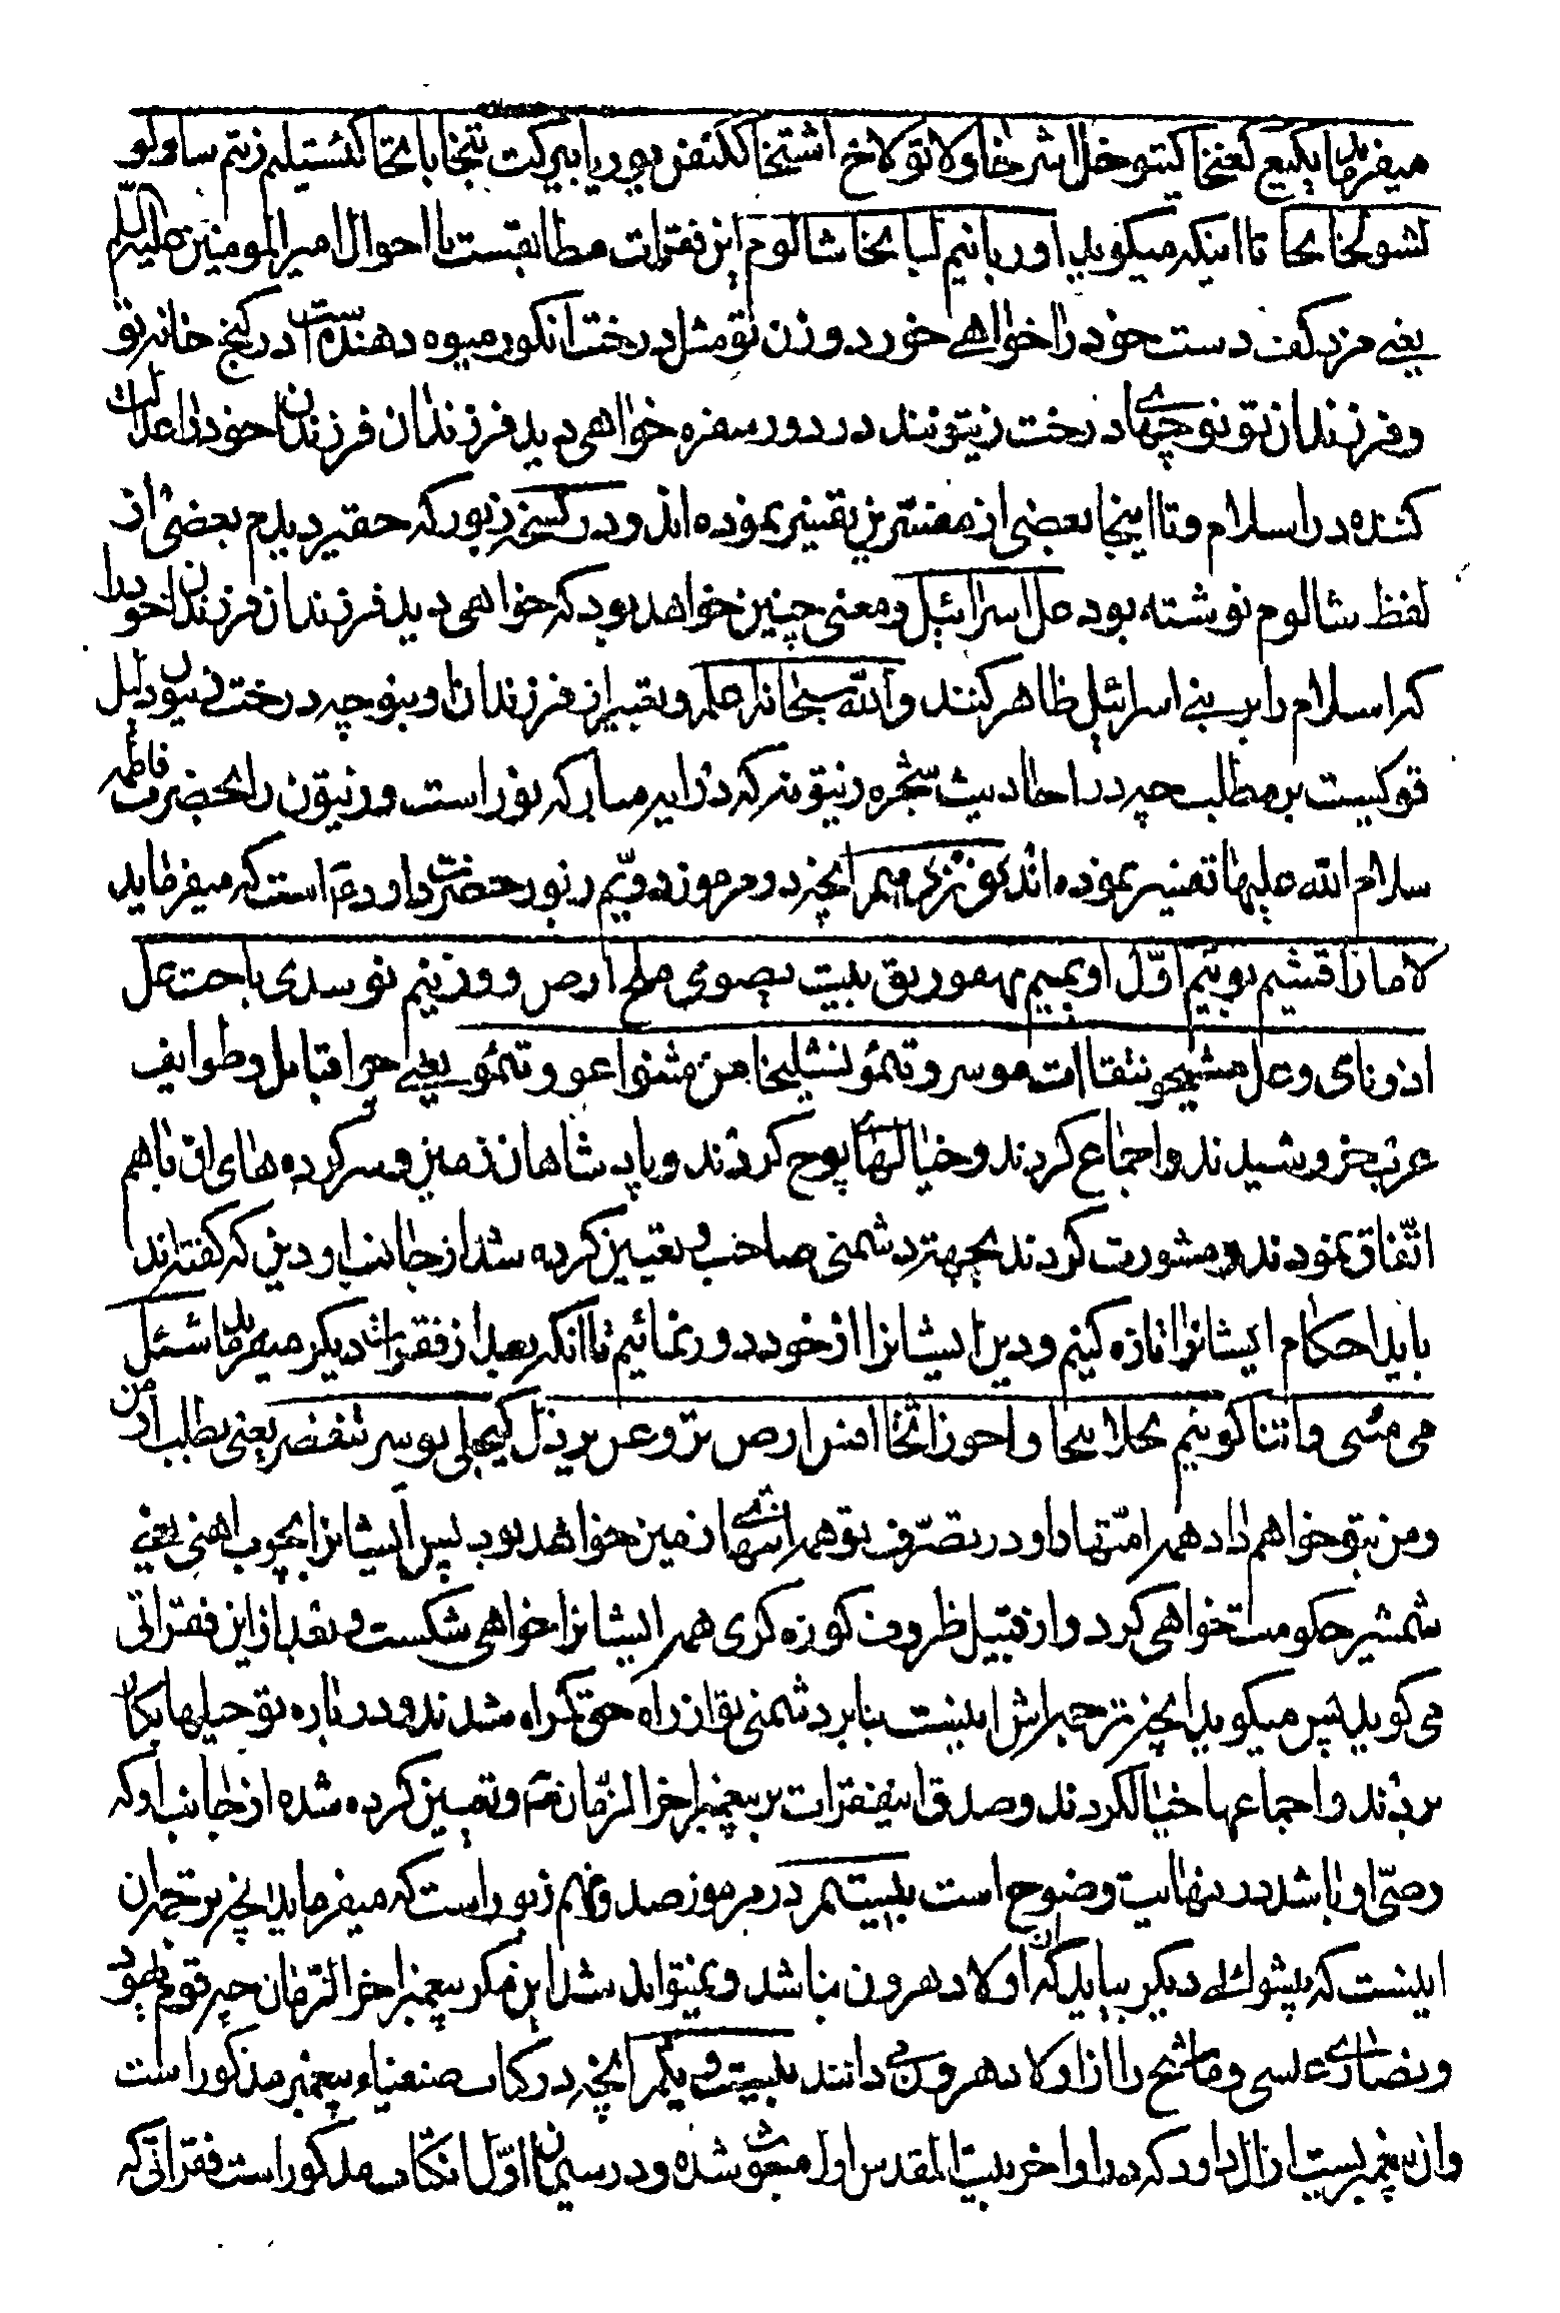 میفرماید یکیع کعنخا کیتو خل اشر خا ولا تو لاخ اشتیخا ککئفن پوریا بیرکت بتیخا بانخا کئستیلیم زتیم ساویو
لشولخانخا تا اینکه میگوید اور بانیم لبانخا شالوم این فقرات مطابقست با احوال امیرالمومنین علیه السلم
یعنی مزد کف دست خود را خواهی خورد و زن تو مثل درخت انکور میوه دهنده است در کنج خانه تو
و فرزندان تو نوچهای درخت زیتونند در دور سفره خواهی دید فرزندان فرزندان خود را عدالت
کننده در اسلام و تا اینجا بعضی از مفسرین تفسیر نموده اند و در نسخه زبور که حقیر دیدم بعضی از
لفظ شالوم نوشته بود عل اسرائیل و معنی چنین خواهد بود که خواهی دید فرزندان فرزندان خود را
که اسلام را بر بنی اسرائیل ظاهر کنند والله سبحانه اعلم و تعبیر از فرزندان او بنوچه درخت زیتون دلیل
قویست بر مطلب چه در احادیث شجره زیتونه که در ایه مبارکه نور است و زیتون را بحضرت فاطمه
سلام الله علیها تفسیر نموده اند نوزدهم انچه در مرموز دویم زبور حضرت داود ع است که میفرماید
لاما زاقشیم بوئیم اول اومیم یهغو ریق بیت یصوی ملخ ارص و وزینم نوسدی یاحت عل
ادونای و عل مشیحو ننتقا ات موسروتمؤ ونشلیخا من متنوا عووتمؤ یعنی چرا قبایل و طوایف
عرب خروشیدند و اجماع کردند و خیالهای پوچ کردند و پادشاهان زمین و سرکرده های ان باهم
اتفاق نمودند و مشورت کردند بجهته دشمنی صاحب و تعیین کرده شد از جانب او دین که کفته اند
باید احکام ایشانرا تازه کنیم و دین ایشانرا از خود دور نمائیم تا انکه بعد از فقرات دیکر میفرماید شئل
می منی و اتنا کوئیم نحلاتخا و احوزاتخا افس ارص تروعم برذل کیخلی یوسر تنفصم یعنی بطلب از من
و من بتو خواهم داد همه امتها را و در تصرف تو همه انتهای زمین خواهد بود پس ایشانرا بچوب اهنی یعنی
شمشیر حکومت خواهی کرد و از قبیل ظروف کوزه کری همه ایشانرا خواهی شکست و بعد از این فقراتی
می کوید پس میکوید انچه ترجمه اش اینست بنابر دشمنی تو از راه حق کمراه شدند و در باره تو حیلها بکار
بردند و اجماعها خیال کردند و صدق این فقرات بر پیغمبر اخر الزمان ص و تعیین کرده شده از جانب او که
وصی او باشد در نهایت وضوح است بیستم در مرموز صد و نهم زبور است که میفرماید انچه ترجمه ان
اینست که پیشوای دیکر بیاید که از اولاد هرون نباشد و نمیتواند شد این مکر پیغمبر اخر الزمان چه قوم یهود
و نصاری عیسی و ماشیح را از اولاد هرون می دانند بیست و یکم انچه در کتاب صفنیاء پیغمبر مذکور است
وان پیغمبریست از ال داود که در اواخر بیت المقدس اول مبعوث شده و در سیمان اول انکتاب مذکور است فقراتی که